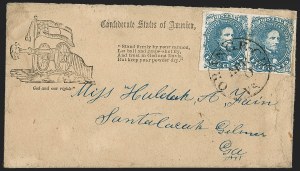 Confederate States of America.
"Stand firmly by your cannon,
Let ball and grape-shot fly,
And trust in God and Davis,
But keep your powder dry."
God and our rights!
Miss Huldah A. Fain
Santaluccah Gilmer
Ga